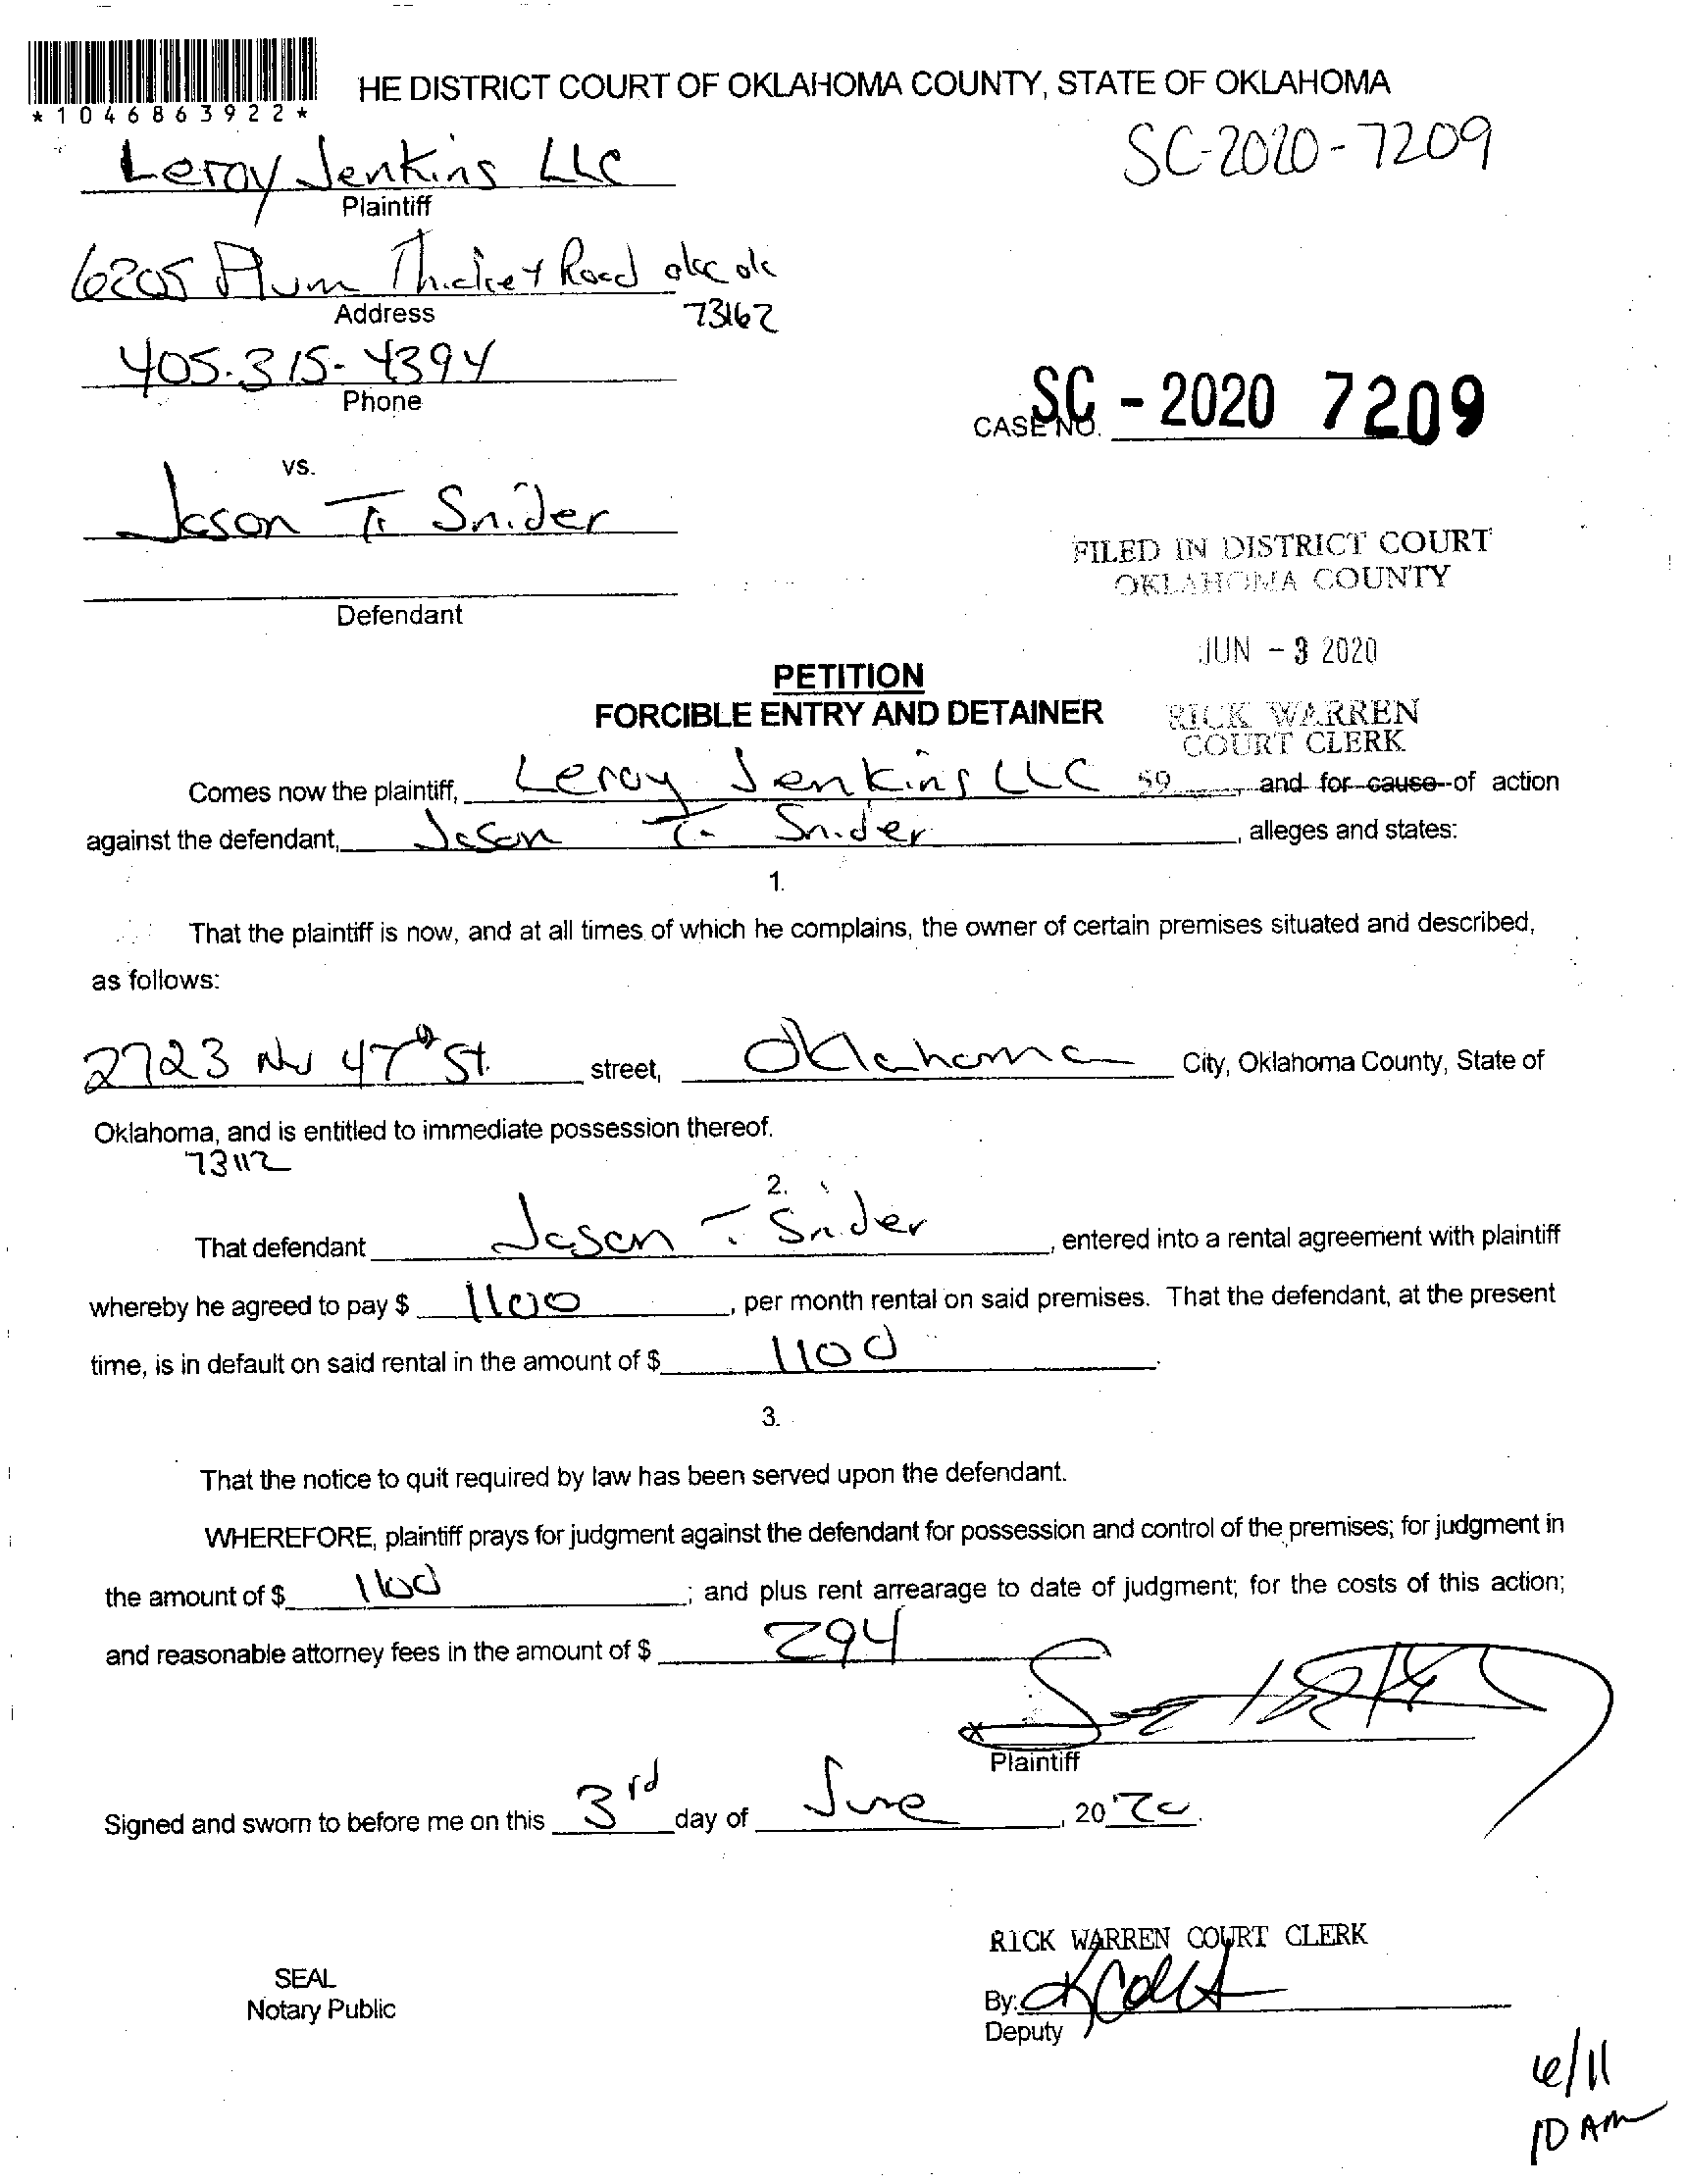 *1046863922*
HE DISTRICT COURT OF OKLAHOMA COUNTY, STATE OF OKLAHOMA
SC-2020-7209
Leroy Jenkins LLC
Plaintiff
6205 Plum Thicket Road okc ok
73162
Address
405-315-4394
Phone
CASE NO. SC - 2020 7209
vs.
Jason T. Snider
FILED IN DISTRICT COURT
OKLAHOMA COUNTY
Defendant
JUN - 3 2020
PETITION
FORCIBLE ENTRY AND DETAINER
RICK WARREN
COURT CLERK
Comes now the plaintiff, Leroy Jenkins LLC 59 and for cause of action
against the defendant, Jason T. Snider, alleges and states:
1.
That the plaintiff is now, and at all times of which he complains, the owner of certain premises situated and described,
as follows:
2723 NW 47th St. street, Oklahoma City, Oklahoma County, State of
Oklahoma, and is entitled to immediate possession thereof.
73112
2.
That defendant Jason T. Snider, entered into a rental agreement with plaintiff
whereby he agreed to pay $ 1100, per month rental on said premises. That the defendant, at the present
time, is in default on said rental in the amount of $ 1100.
3.
That the notice to quit required by law has been served upon the defendant.
WHEREFORE, plaintiff prays for judgment against the defendant for possession and control of the premises; for judgment in
the amount of $ 1100; and plus rent arrearage to date of judgment; for the costs of this action;
and reasonable attorney fees in the amount of $ 294
x
Plaintiff
Signed and sworn to before me on this 3rd day of June, 2020.
RICK WARREN COURT CLERK
SEAL
Notary Public
By:
Deputy
6/11
10 AM